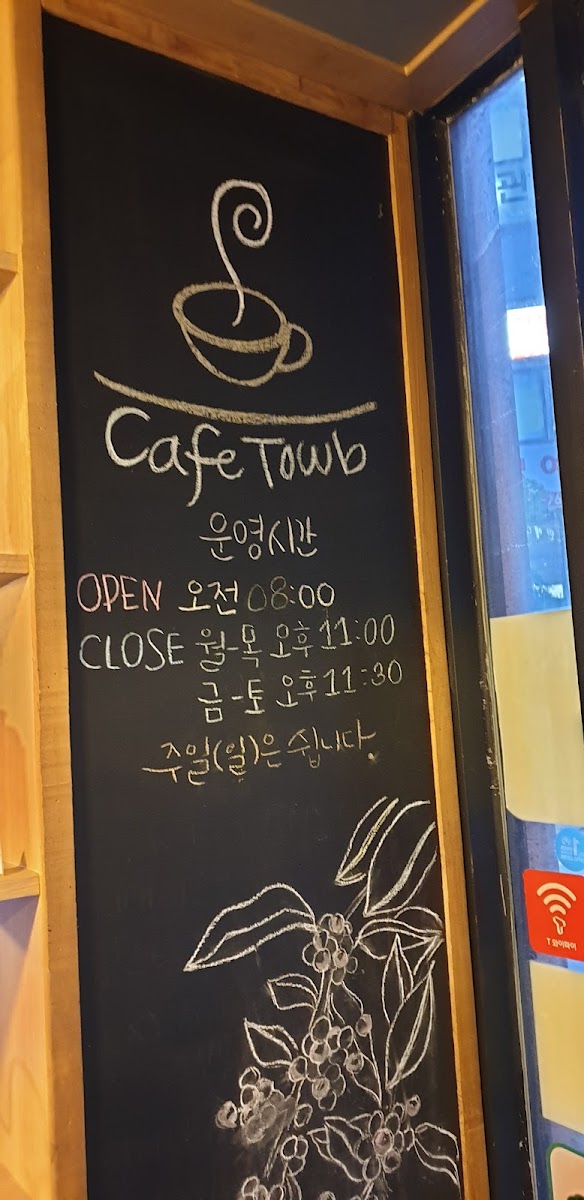 Cafe Towb
운영시간
OPEN 오전 08:00
CLOSE 월-목 오후 11:00
금-토 오후 11:30
주일(일)은 쉽니다.
T 와이파이